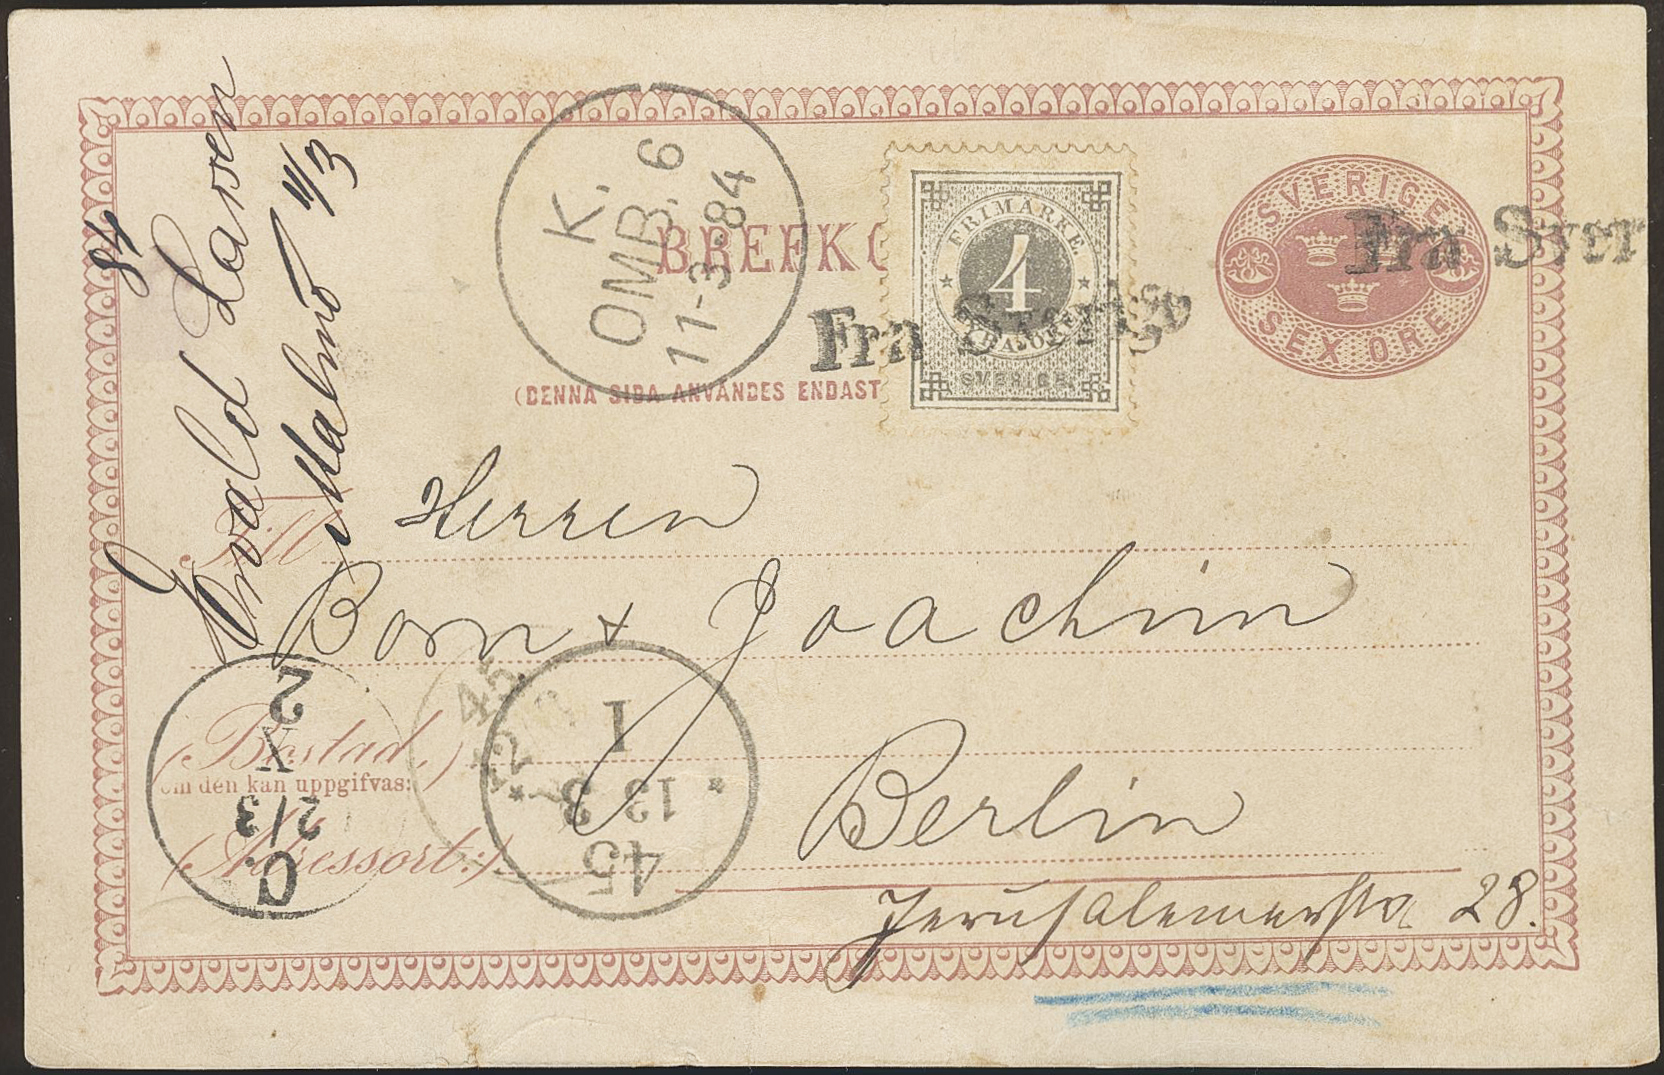 BREFK
(DENNA SIDA ANVÄNDES ENDAST
SVERIGE
SEX ÖRE
FRIMÄRKE
4
SVERIGE.
Fra Sverige
Fra Sver
K.
OMB. 6
11-3-84
Ewald Larsen
Malmö 11/3
84
Till
Herren
Born & Joachim
(Bostad,)
om den kan uppgifvas:
Berlin
(Adressort:)
Jerusalemerstr 28.
45
* 12 3 *
I
45
C.
2/3
X
2